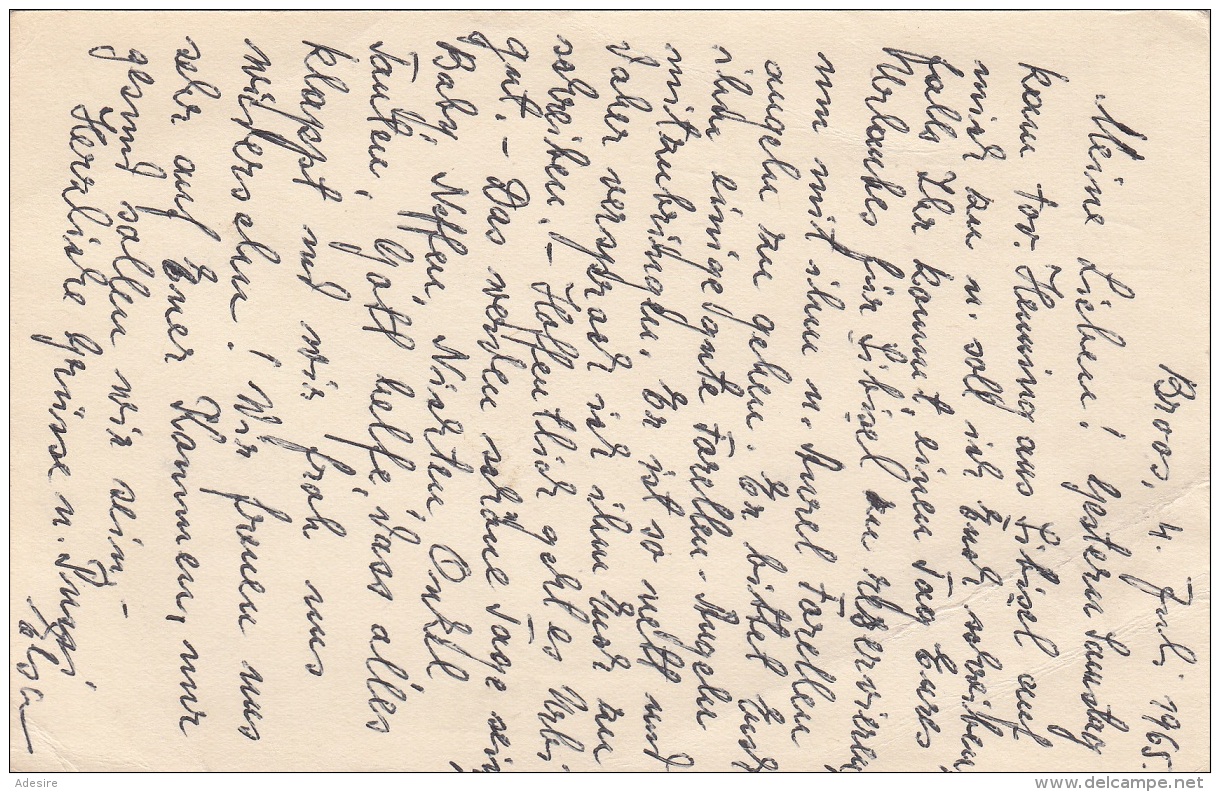 Broos, 4. Juli 1965.
Meine Lieben! Gestern Samstag
kam For. Henning aus Sibisel auf
mich zu u. soll ich Euch schreiben,
falls Ihr kommt, einen Tag Eures
Urlaubes für Sibisel zu reservieren,
um mit ihm u. Aurel Forellen
angeln zu gehen. Er bittet Euch
ihm einige Forellen Angeln
mitzubringen. Er ist so nett und
daher versprach ich ihm Euch zu
schreiben. – Hoffentlich geht es Urbi
gut. – Das werden schöne Tage sein,
Baby, Neffen, Nichten, Onkel
Tanten, Gott helfe, dass alles
klappt und wir froh uns
wiedersehen! Wir freuen uns
sehr auf Euer Kommen, nur
gesund sollen wir sein, –
Herzliche Grüsse u. Pussi
Elsa
Adesire
www.delcampe.net